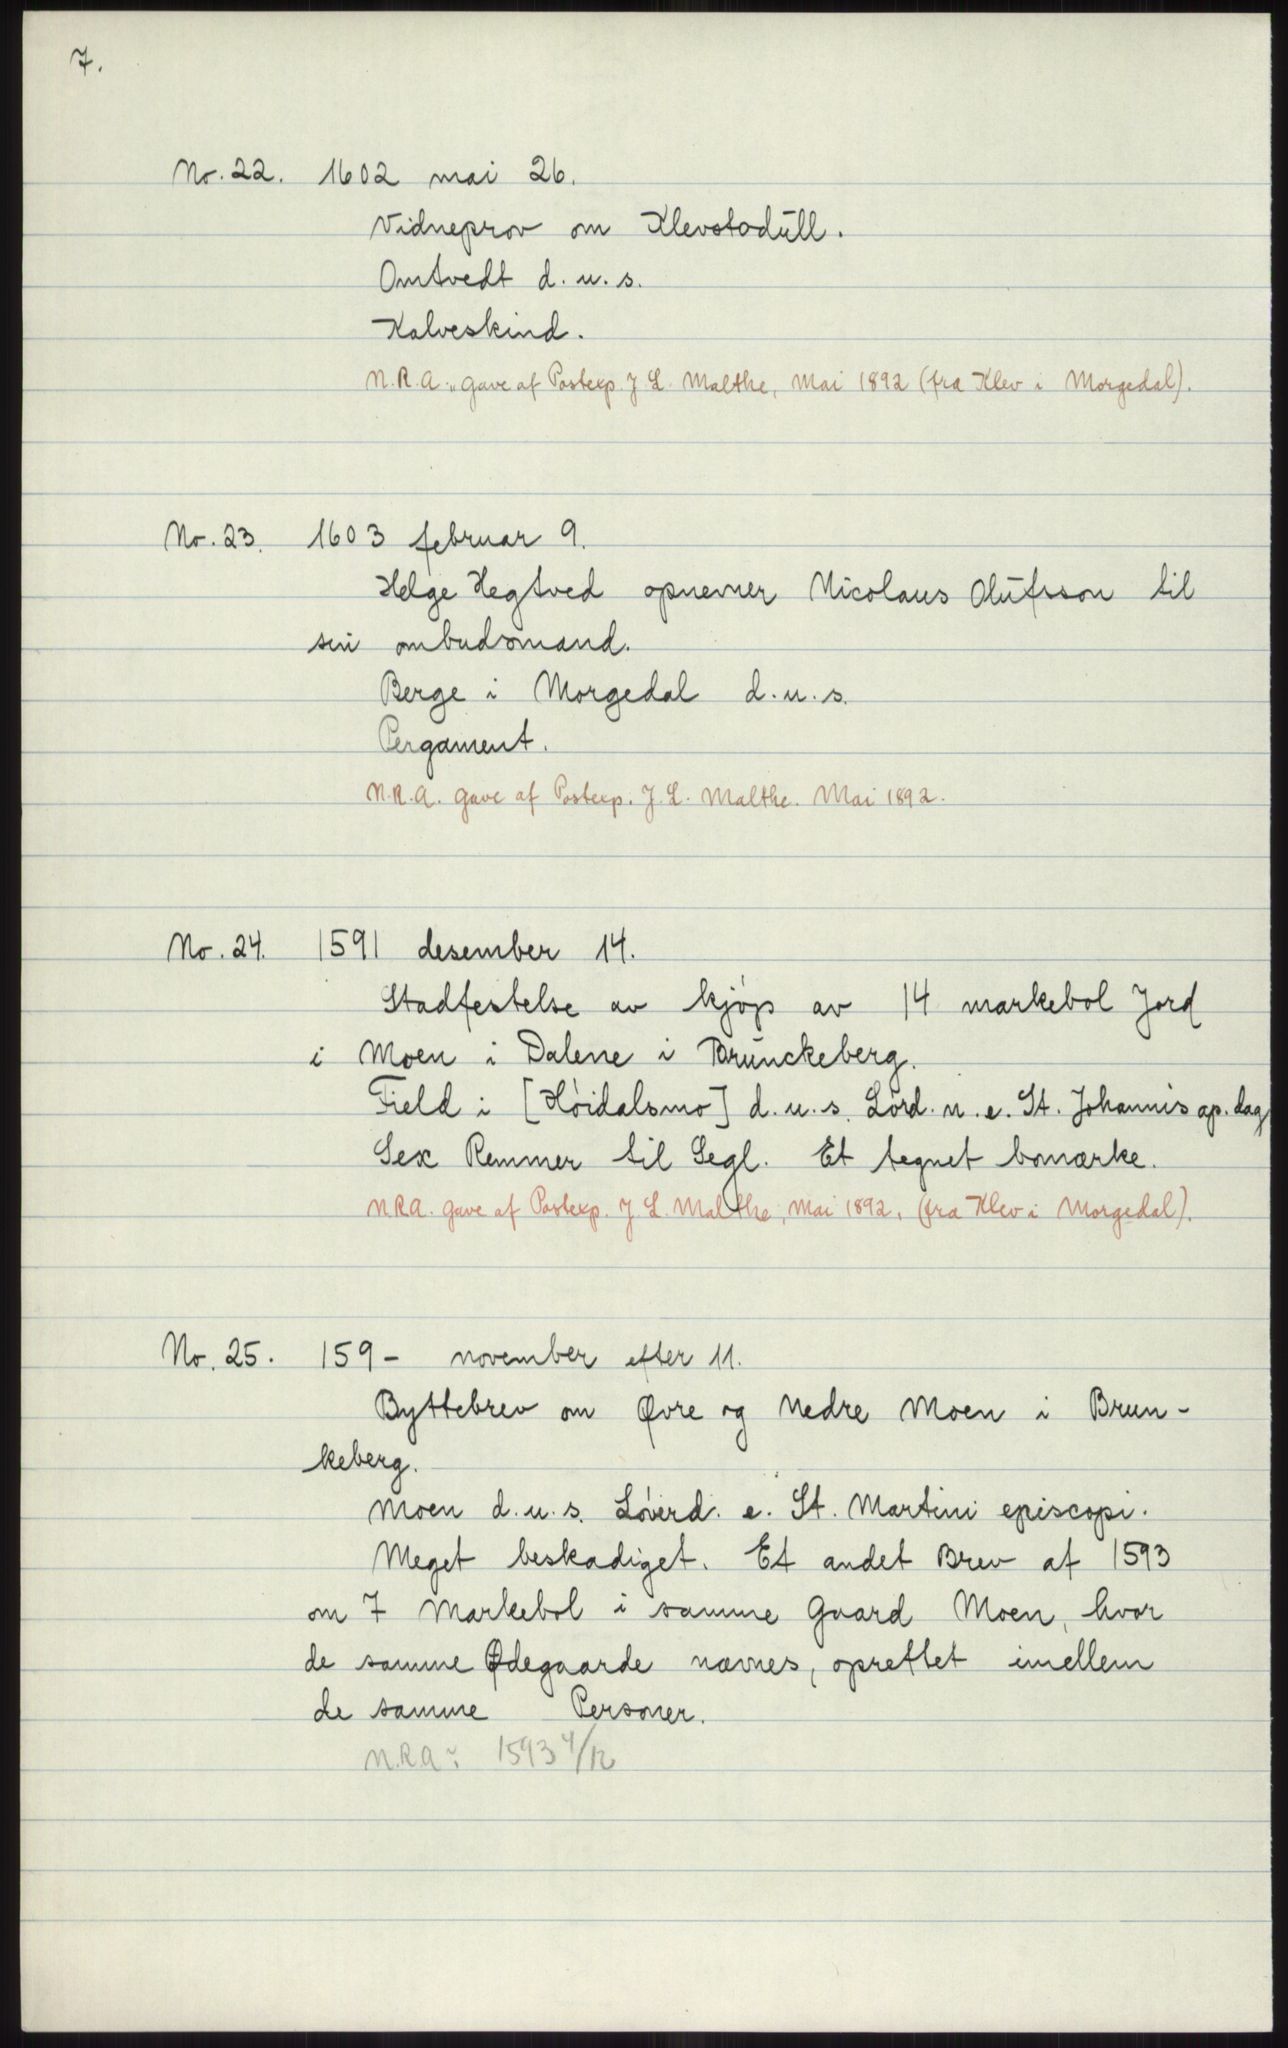 7.
No. 22. 1602 mai 26.
Vidneprov om Klevstadüll.
Omtvedt d. u. s.
Kalveskind.
N.R.A. „gave af Postexp. J. L. Malthe, Mai 1892 (fra Klev i Morgedal).
No. 23. 1603 februar 9.
Helge Hegtved opnevner Nicolaus Olüfsson til
sin ombudsmand.
Berge i Morgedal d. u. s.
Pergament.
N.R.A. gave af Postexp. J. L. Malthe. Mai 1892.
No. 24. 1591 desember 14.
Stadfestelse av kjóp av 14 markebol Jord
i Moen i Dalene i Brünckeberg.
Field i [Hóidalsmo] d. u. s. Lórd. n. e. St. Johannis ap. dag
Sex Remmer til Segl. Et tegnet bomærke.
N.R.A. gave af Postexp. J. L. Malthe, Mai 1892. (fra Klev i Morgedal).
No. 25. 159- november efter 11.
Byttebrev om Øvre og Nedre Moen i Brun-
keberg.
Moen d. u. s. Lóverd. e. St. Martini episcopi.
Meget beskadiget. Et andet Brev af 1593
om 7 Markebol i samme Gaard Moen, hvor
de samme Ødegaarde nævnes, oprettet imellem
de samme Personer.
N.R.A. 1593 4/12